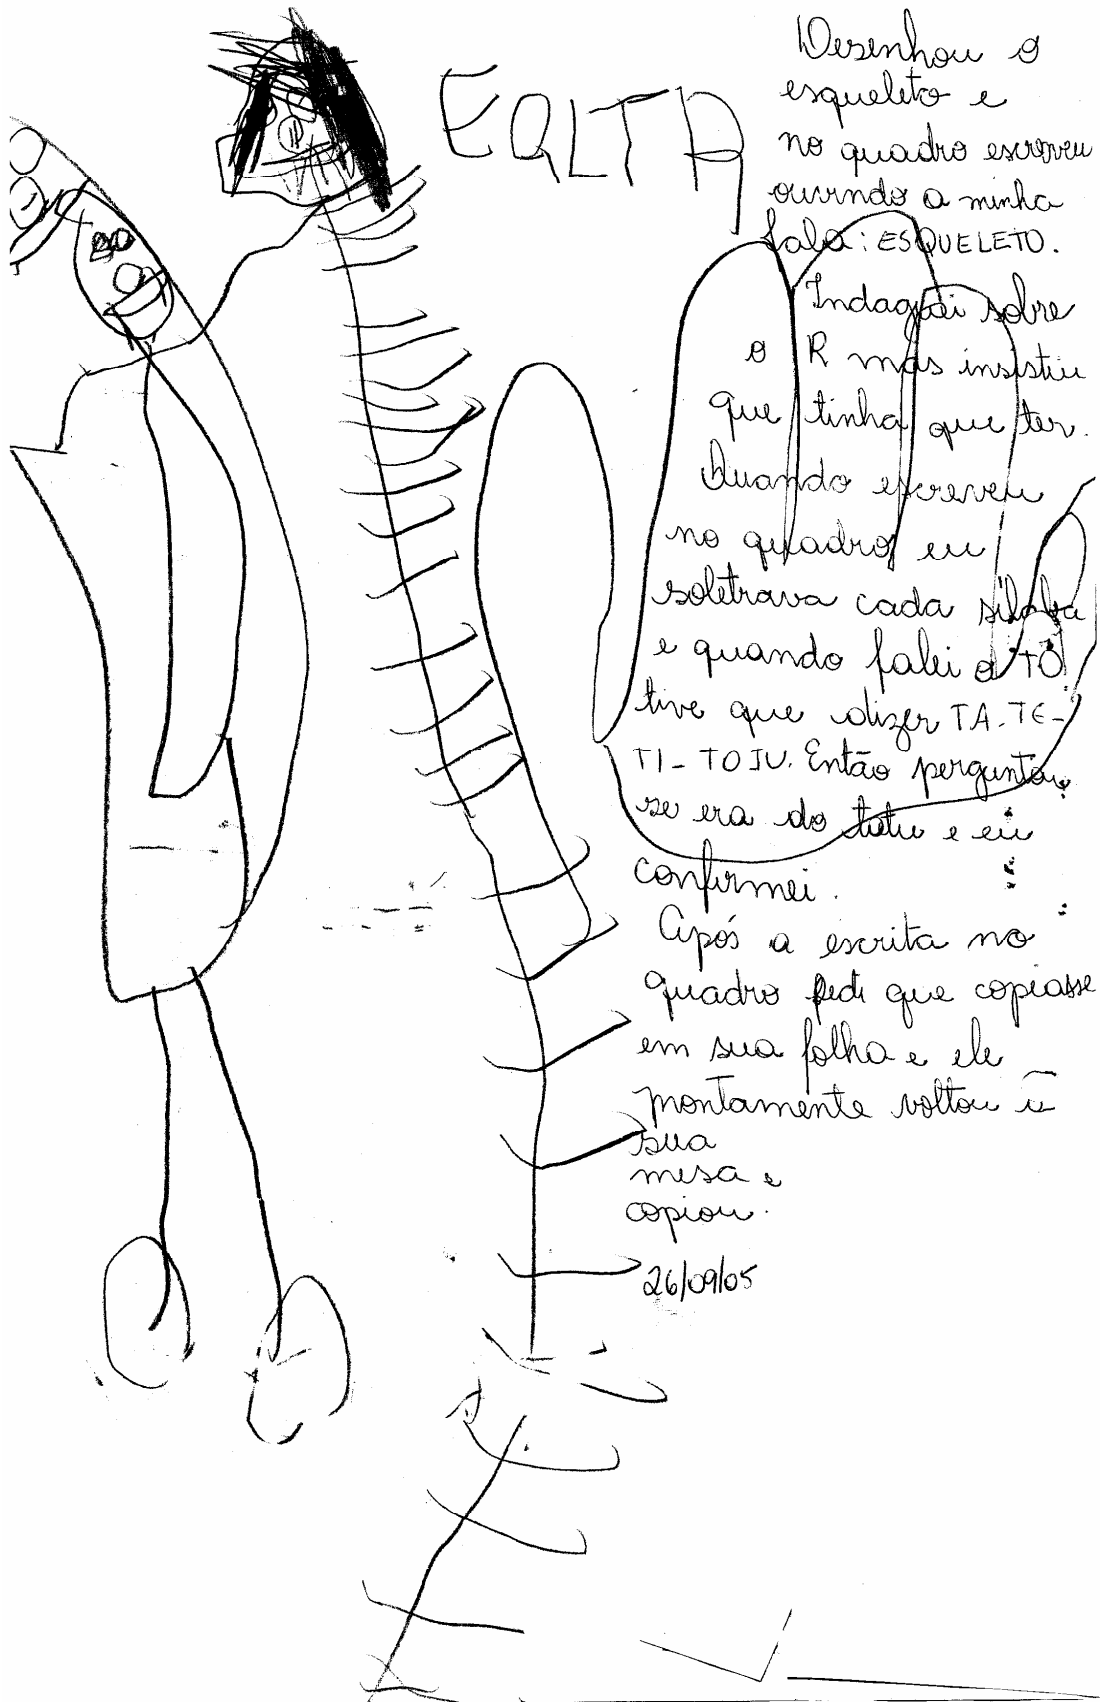 EQLTR
Desenhou o
esqueleto e
no quadro escreveu
ouvindo a minha
fala: ESQUELETO.
Indaguei sobre
o R mas insistiu
que tinha que ter.
Quando escreveu
no quadro eu
soletrava cada sílaba
e quando falei o TO
tive que dizer TA-TE-
TI-TOTU. Então perguntou
se era do tatu e eu
confirmei.
Após a escrita no
quadro pedi que copiasse
em sua folha e ele
prontamente voltou à
sua
mesa e
copiou.
26/09/05